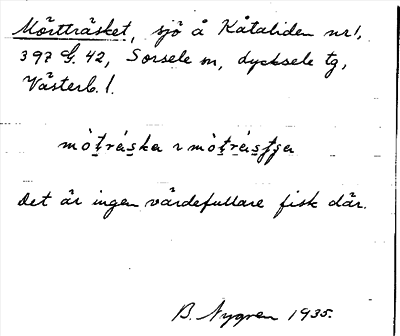 Mörtträsket, sjö å Kåtaliden nr 1,
397 G. 42, Sorsele sn, Lycksele tg,
Västerb. l.
mòt̤ráska
Det är ingen värdefullare fisk där.
B. Nygren 1935.